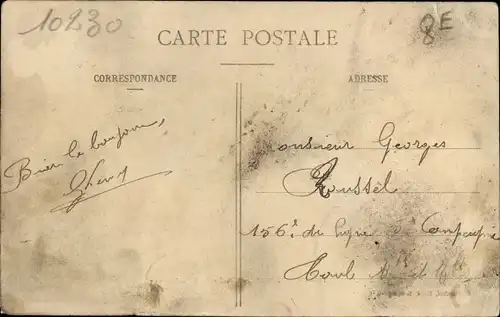 10230
8E
CARTE POSTALE
CORRESPONDANCE
ADRESSE
Bien le bonjour
Monsieur Georges
Roussel
156e de ligne Compagnie
Toul Mthe et Mlle